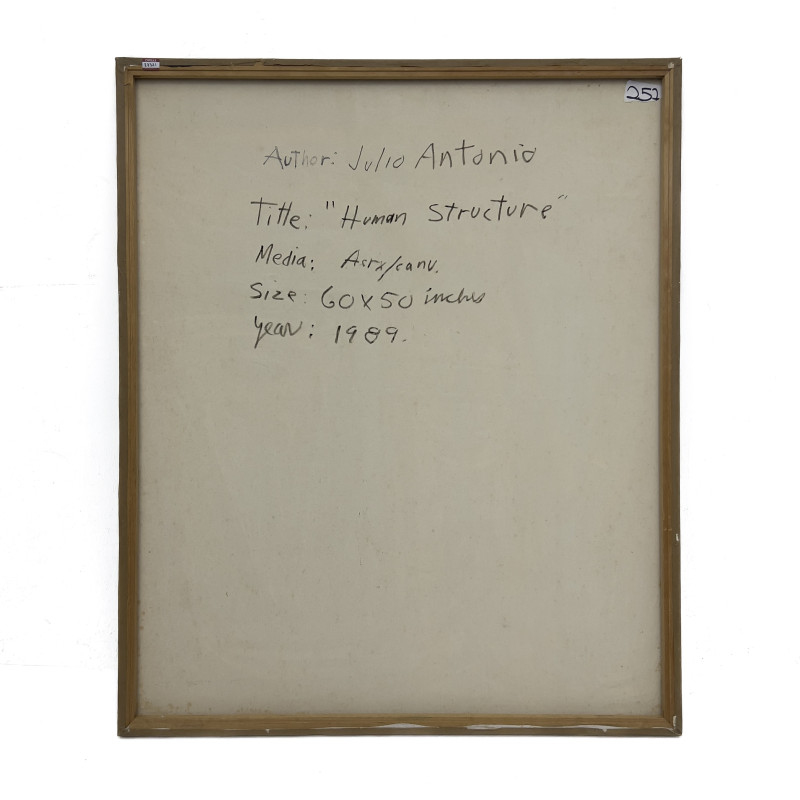 252
Author: Julio Antonio
Title: "Human Structure"
Media: Acrx/canv.
Size: 60x50 inches
year: 1989.